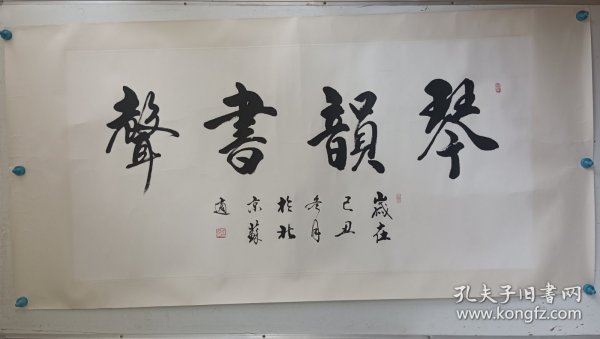 琴韻書聲
歲在
己丑
冬月
於北
京蘇
適
孔夫子旧書网
www.kongfz.com